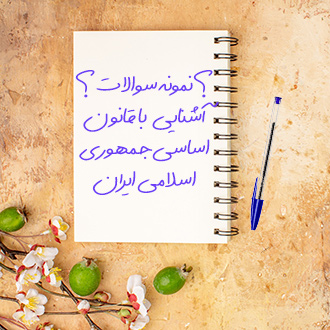 ؟ نمونه سوالات ؟
آشنایی با قانون
اساسی جمهوری
اسلامی ایران